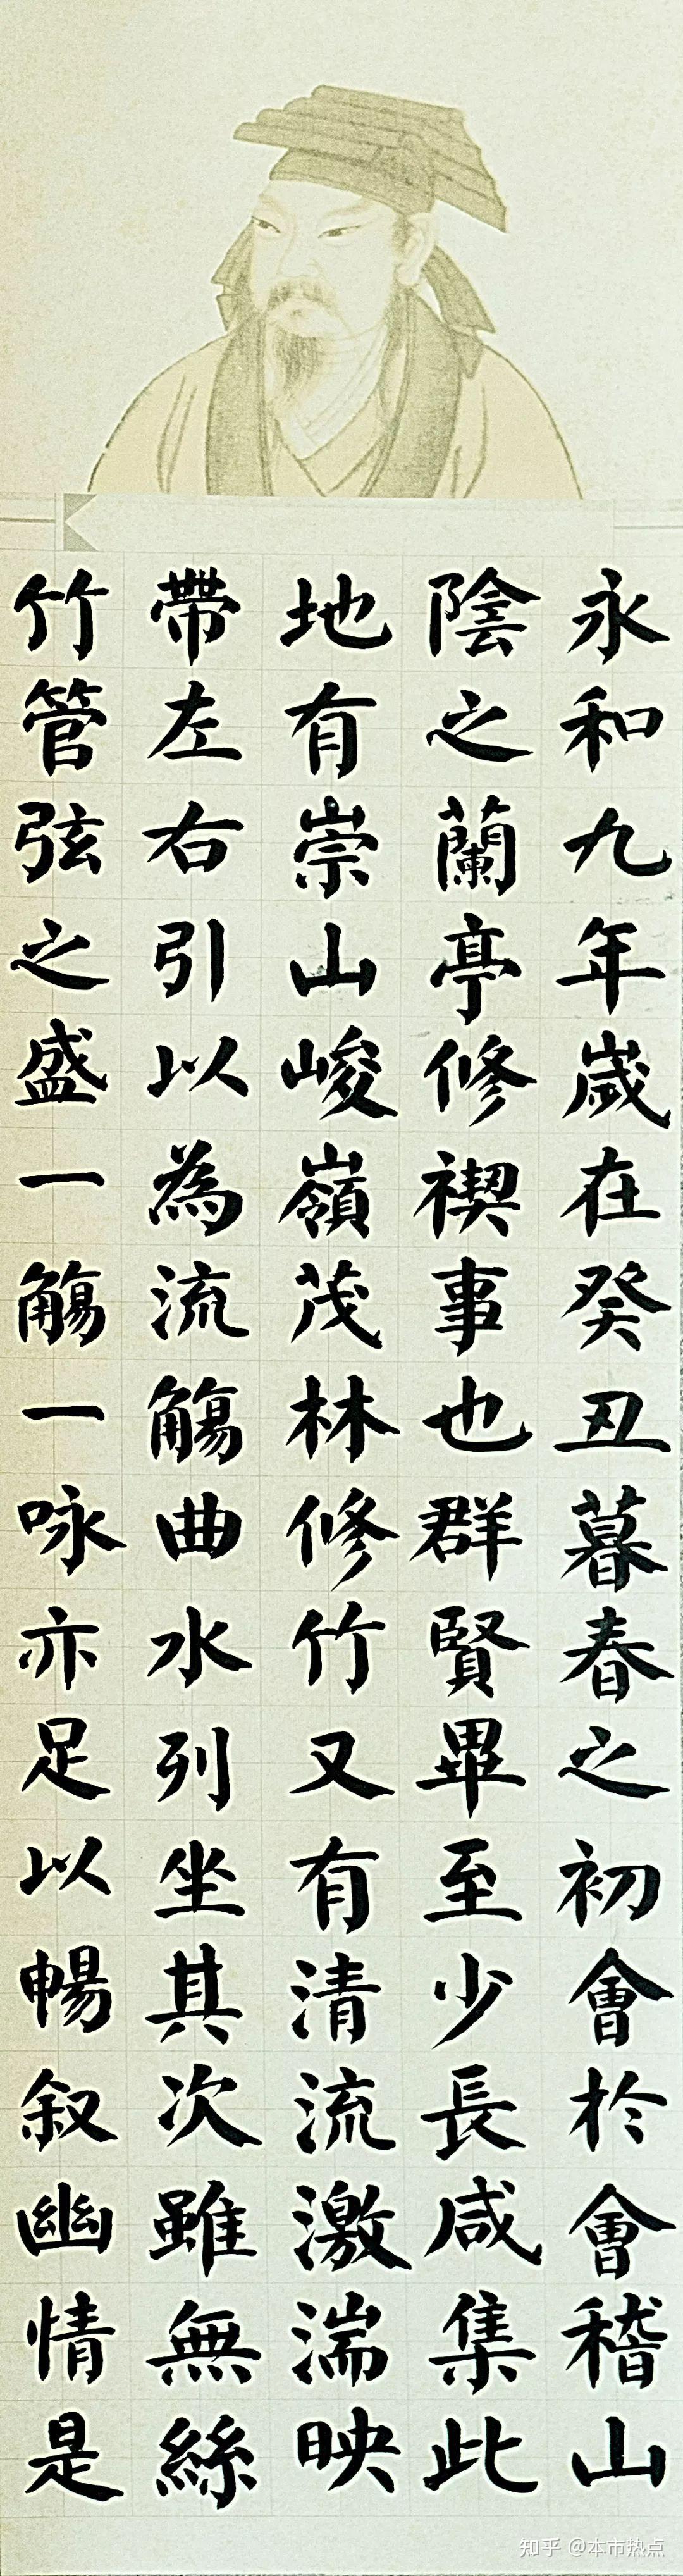 永和九年歲在癸丑暮春之初會於會稽山
陰之蘭亭修禊事也群賢畢至少長咸集此
地有崇山峻嶺茂林修竹又有清流激湍映
帶左右引以為流觴曲水列坐其次雖無絲
竹管弦之盛一觴一咏亦足以暢叙幽情是
知乎 @本市热点